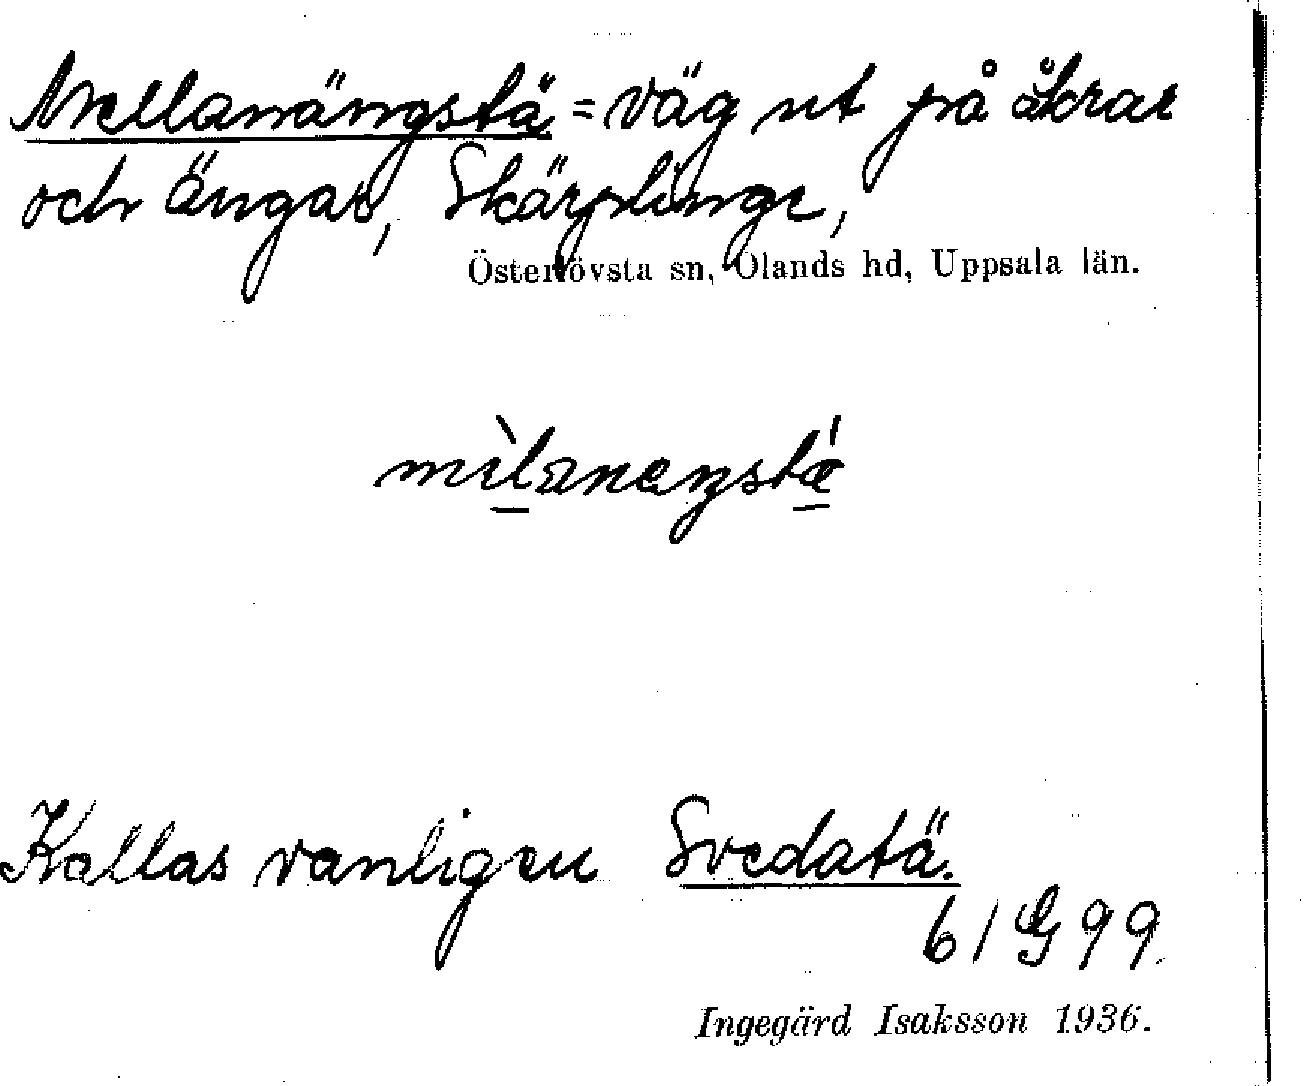 Mellanängstä = väg ut på åkrar
och ängar, Skärplinge,
Österlövsta sn, Olands hd, Uppsala län.
Kallas vanligen Svedatä.
61G99
Ingegärd Isaksson 1936.